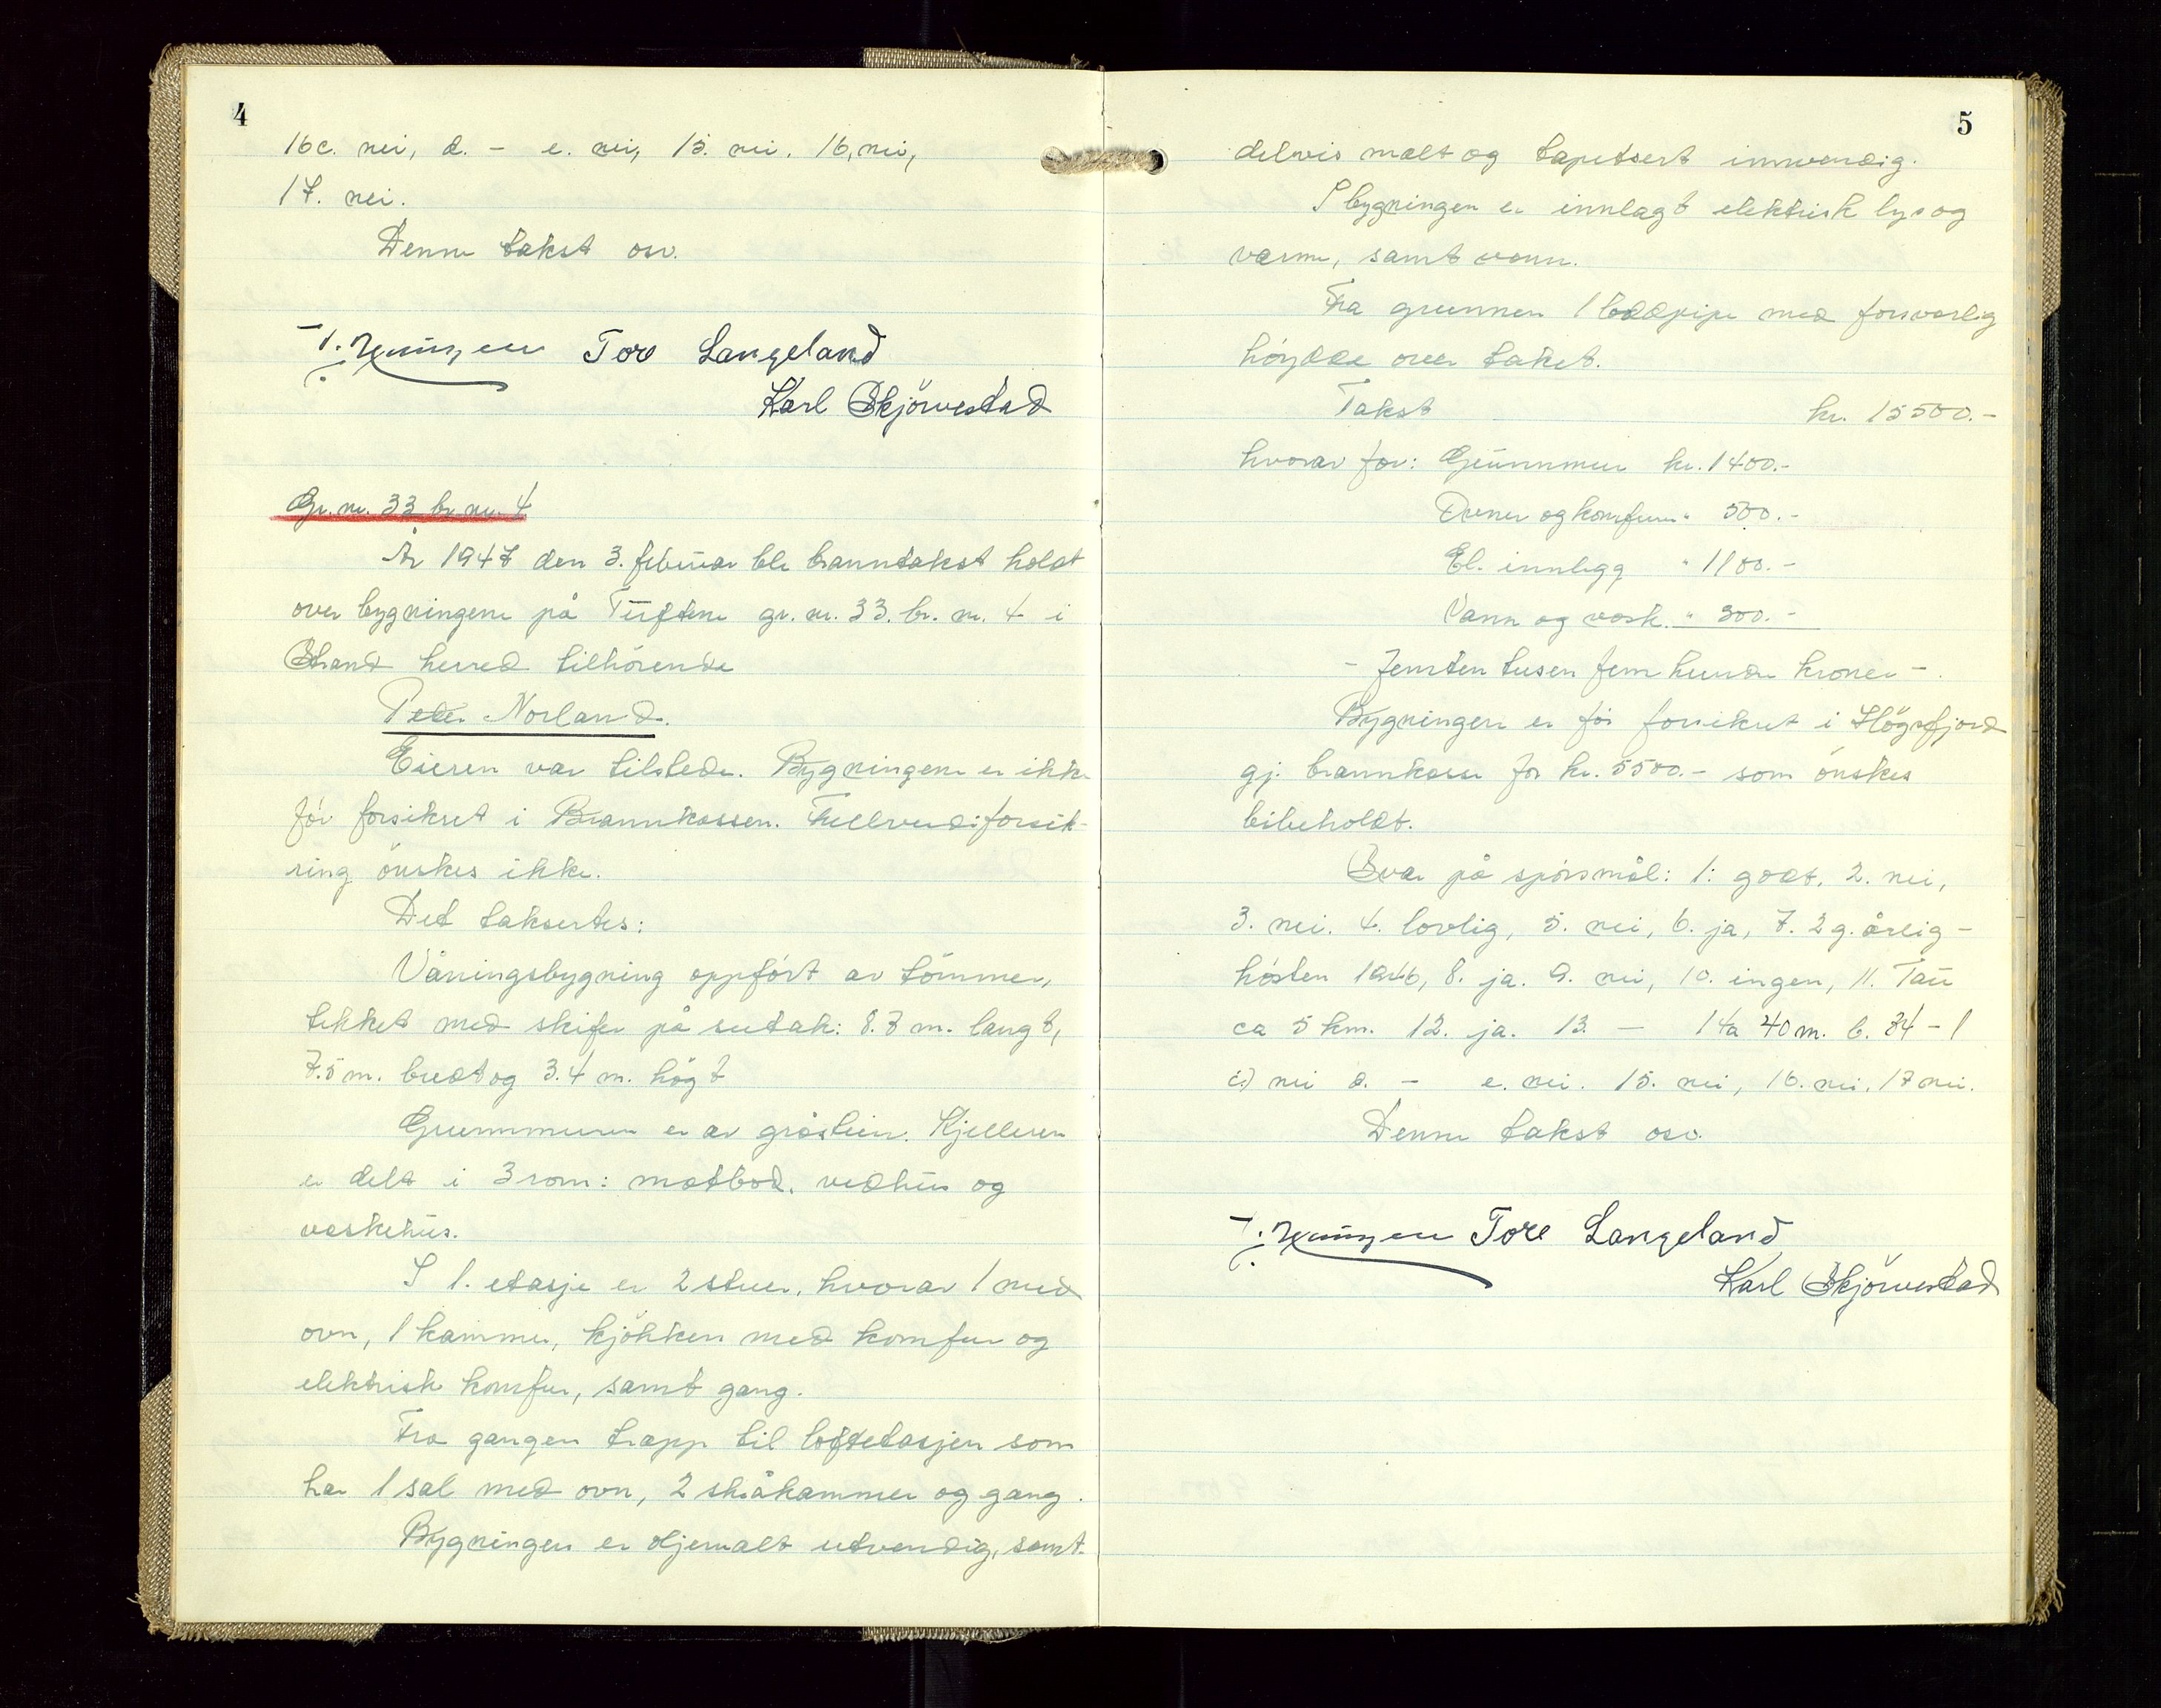 4
16c. nei, d. - e. nei, 15. nei. 16, nei,
17. nei.
Denne takst osv.
Tore Langeland
Karl Skjörvestad
Gr. nr. 33 br. nr. 4
År 1947 den 3. februar ble branntakst holdt
over bygningene på Tuftene gr. nr. 33. br. nr. 4 i
Strand herred tilhörende
Peder Norland.
Eieren var tilstede. Bygningene er ikke
för forsikret i Brannkassen. Fullverdiforsik-
ring önskes ikke.
Det taksertes:
Våningsbygning oppfört av tömmer,
tekket med skifer på sutak: 8.7 m. langt,
7.5 m. bredt og 3.4 m. högt
Grunnmuren er av gråstein. Kjelleren
er delt i 3 rom: matbod, vedhus og
vaskehus.
I 1. etasje er 2 stuer, hvorav 1 med
ovn, 1 kammer, kjökken med komfur og
elektrisk komfur, samt gang.
Fra gangen trapp til loftetasjen som
har 1 sal med ovn, 2 skråkammer og gang.
Bygningen er oljemalt utvendig, samt
5
delvis malt og tapetsert innvendig.
I bygningen er innlagt elektrisk lys og
varme, samt vann.
Fra grunnen 1 teglpipe med forsvarlig
höyde over taket.
Takst kr. 15500.-
hvorav for: Grunnmur kr. 1400.-
Ovner og komfur " 500.-
El. innlegg " 1100.-
Vann og vask. " 300.-
- Femten tusen fem hundre kroner -.
Bygningen er för forsikret i Högsfjord
gj. brannkasse for kr. 5500.- som önskes
bibeholdt.
Svar på spörsmål: 1: godt, 2. nei,
3. nei. 4. lovlig, 5. nei, 6. ja, 7. 2 g. årlig -
hösten 1946, 8. ja. 9. nei, 10. ingen, 11. Tau
ca 5 km. 12. ja. 13. - 14a 40 m. b. 34 - 1
c) nei d. - e. nei. 15. nei, 16. nei, 17 nei.
Denne takst osv.
Tore Langeland
Karl Skjörvestad